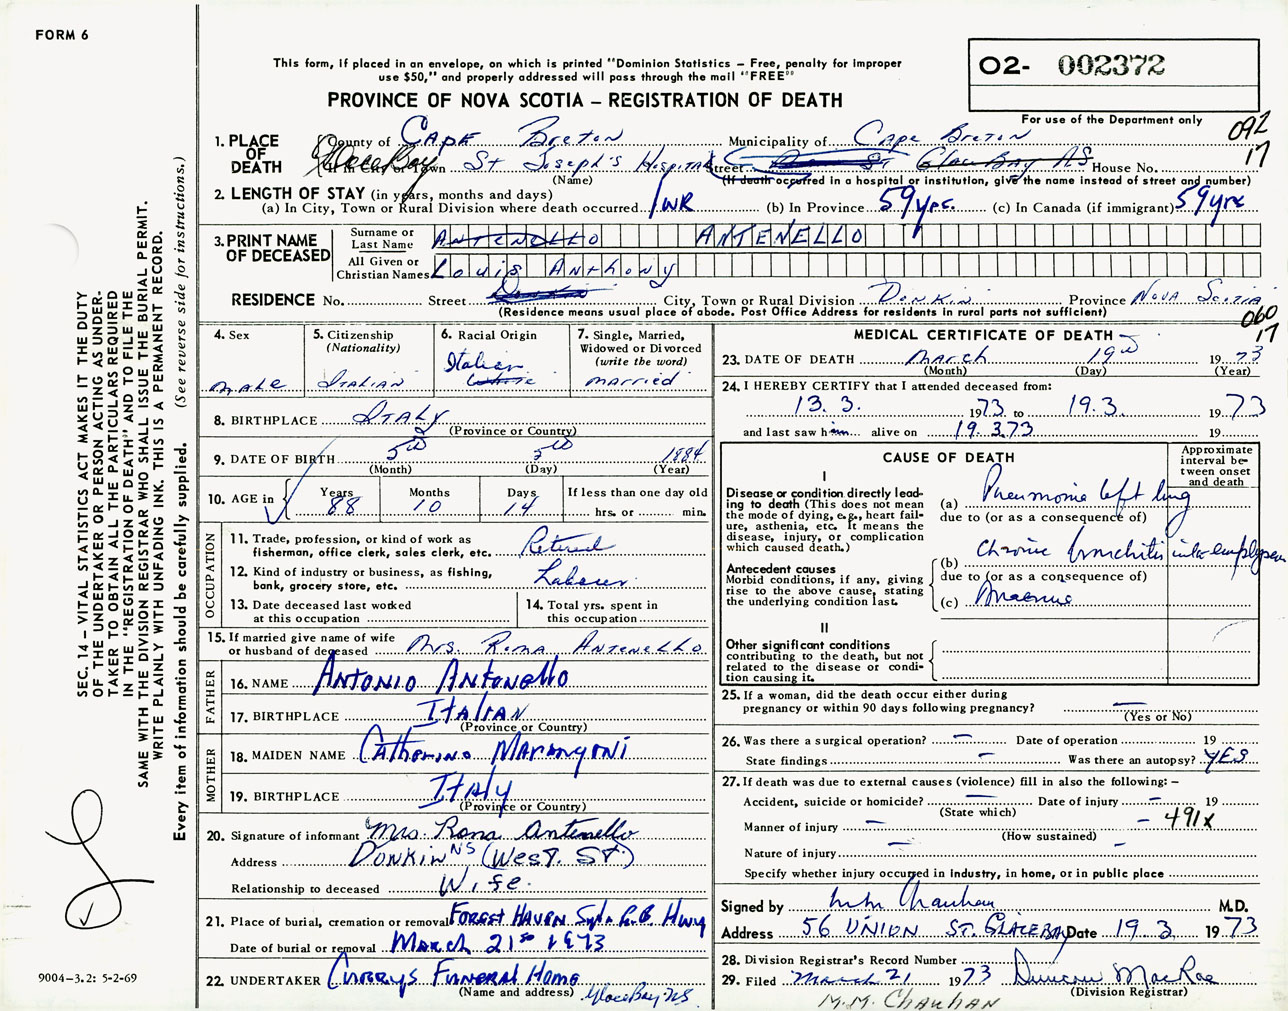 FORM 6
This form, if placed in an envelope, on which is printed "Dominion Statistics – Free, penalty for improper
use $50," and properly addressed will pass through the mail "FREE"
PROVINCE OF NOVA SCOTIA – REGISTRATION OF DEATH
O2- 002372
For use of the Department only
092
17
1. PLACE OF DEATH
County of Cape Breton Municipality of Cape Breton
Glace Bay City or Town St Joseph's Hospital Street St Glace Bay NS House No.
(Name) (If death occurred in a hospital or institution, give the name instead of street and number)
2. LENGTH OF STAY (in years, months and days)
(a) In City, Town or Rural Division where death occurred 1WK (b) In Province 59 yrs. (c) In Canada (if immigrant) 59 yrs
3. PRINT NAME OF DECEASED
Surname or Last Name ANTENELLO ANTENELLO
All Given or Christian Names Louis Anthony
RESIDENCE No. Street Donkin City, Town or Rural Division Donkin Province Nova Scotia
(Residence means usual place of abode. Post Office Address for residents in rural parts not sufficient)
060
17
4. Sex male
5. Citizenship (Nationality) Italian
6. Racial Origin Italian White
7. Single, Married, Widowed or Divorced (write the word) married
8. BIRTHPLACE Italy
(Province or Country)
9. DATE OF BIRTH 5th 5th 1884
(Month) (Day) (Year)
10. AGE in Years 88 Months 10 Days 14 If less than one day old hrs. or min.
OCCUPATION
11. Trade, profession, or kind of work as fisherman, office clerk, sales clerk, etc. Retired
12. Kind of industry or business, as fishing, bank, grocery store, etc. Laborer
13. Date deceased last worked at this occupation
14. Total yrs. spent in this occupation
15. If married give name of wife or husband of deceased Mrs. Rona Antenello
FATHER
16. NAME Antonio Antonello
17. BIRTHPLACE Italian
(Province or Country)
MOTHER
18. MAIDEN NAME Catherino Marangoni
19. BIRTHPLACE Italy
(Province or Country)
20. Signature of informant Mrs. Rona Antenello
Address Donkin NS (West. St.)
Relationship to deceased Wife.
21. Place of burial, cremation or removal Forest Haven Hwy
Date of burial or removal March 21st 1973
22. UNDERTAKER Currys Funeral Home
(Name and address) Glace Bay NS
MEDICAL CERTIFICATE OF DEATH
23. DATE OF DEATH March 19th 1973
(Month) (Day) (Year)
24. I HEREBY CERTIFY that I attended deceased from:
13. 3. 1973 to 19.3 1973
and last saw him alive on 19.3.73 19
CAUSE OF DEATH
Approximate interval between onset and death
I
Disease or condition directly leading to death (This does not mean the mode of dying, e.g., heart failure, asthenia, etc. It means the disease, injury, or complication which caused death.)
(a) Pneumonia left lung
due to (or as a consequence of)
Antecedent causes
Morbid conditions, if any, giving rise to the above cause, stating the underlying condition last.
(b) Chronic bronchitis
due to (or as a consequence of)
(c)
II
Other significant conditions contributing to the death, but not related to the disease or condition causing it.
25. If a woman, did the death occur either during
pregnancy or within 90 days following pregnancy? —
(Yes or No)
26. Was there a surgical operation? – Date of operation 19
State findings – Was there an autopsy? YES
27. If death was due to external causes (violence) fill in also the following: –
Accident, suicide or homicide? — Date of injury – 19
(State which)
Manner of injury — – 491X
(How sustained)
Nature of injury — –
Specify whether injury occurred in industry, in home, or in public place
Signed by Chauhan M.D.
Address 56 UNION ST. GLACE BAY Date 19 3 1973
28. Division Registrar's Record Number
29. Filed March 21 1973 Duncan MacRae
(Division Registrar)
M.M. Chauhan
SEC. 14 – VITAL STATISTICS ACT MAKES IT THE DUTY
OF THE UNDERTAKER OR PERSON ACTING AS UNDER-
TAKER TO OBTAIN ALL THE PARTICULARS REQUIRED
IN THE "REGISTRATION OF DEATH" AND TO FILE THE
SAME WITH THE DIVISION REGISTRAR WHO SHALL ISSUE THE BURIAL PERMIT.
WRITE PLAINLY WITH UNFADING INK. THIS IS A PERMANENT RECORD.
Every item of information should be carefully supplied. (See reverse side for instructions.)
9004-3.2: 5-2-69